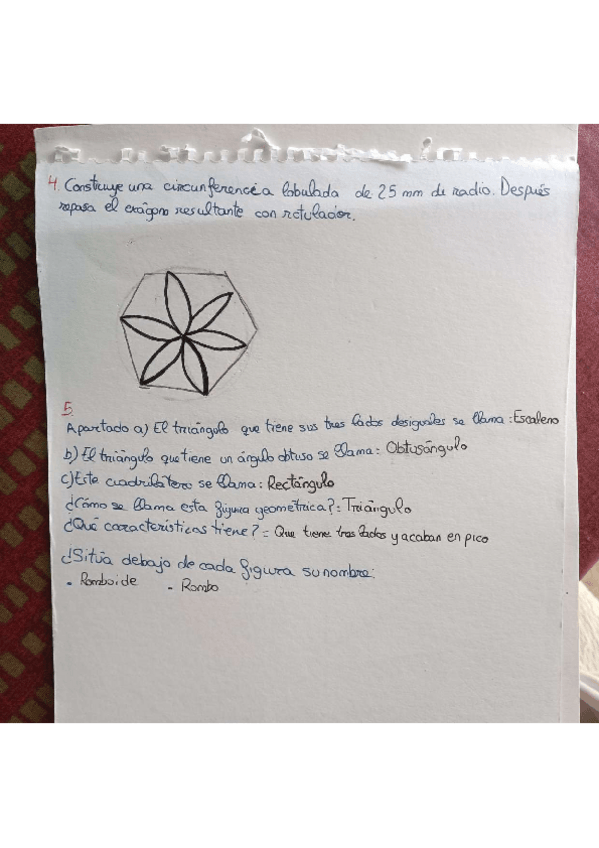 4. Construye una circunferencia lobulada de 25 mm de radio. Después
repasa el exágono resultante con rotulador.
5.
Apartado a) El triángulo que tiene sus tres lados desiguales se llama: Escaleno
b) El triángulo que tiene un ángulo obtuso se llama: Obtusángulo
c) Este cuadrilátero se llama: Rectángulo
¿Cómo se llama esta figura geométrica?: Triángulo
¿Qué características tiene? = Que tiene tres lados y acaban en pico
¿Sitúa debajo de cada figura su nombre:
- Romboide - Rombo